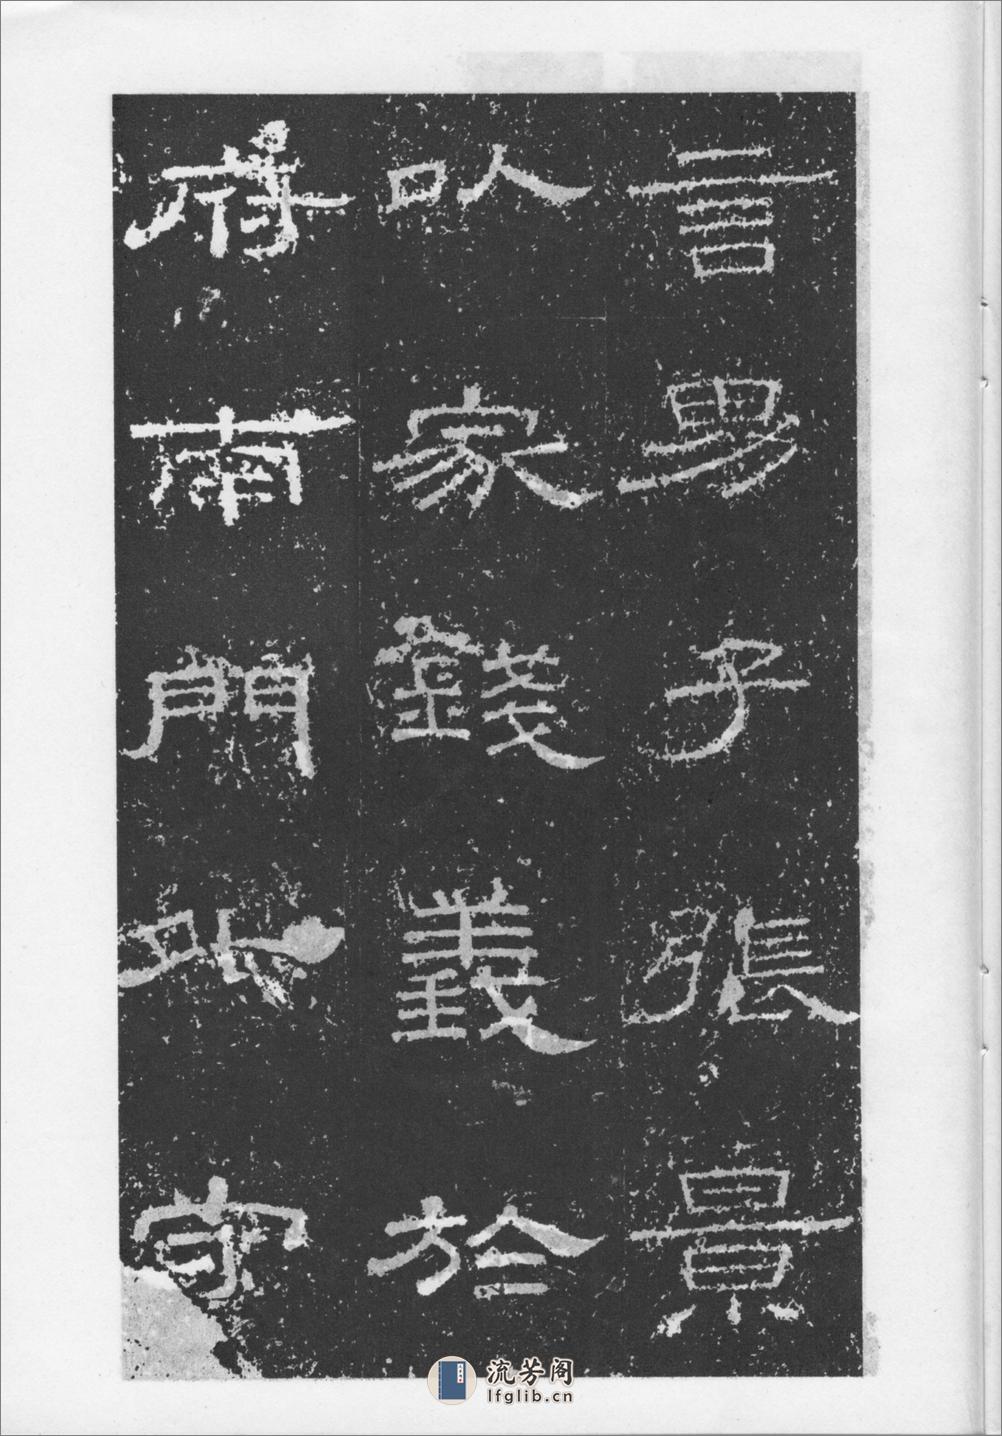 言男子張景
以家錢義於
府南門外守
流芳阁
lfglib.cn